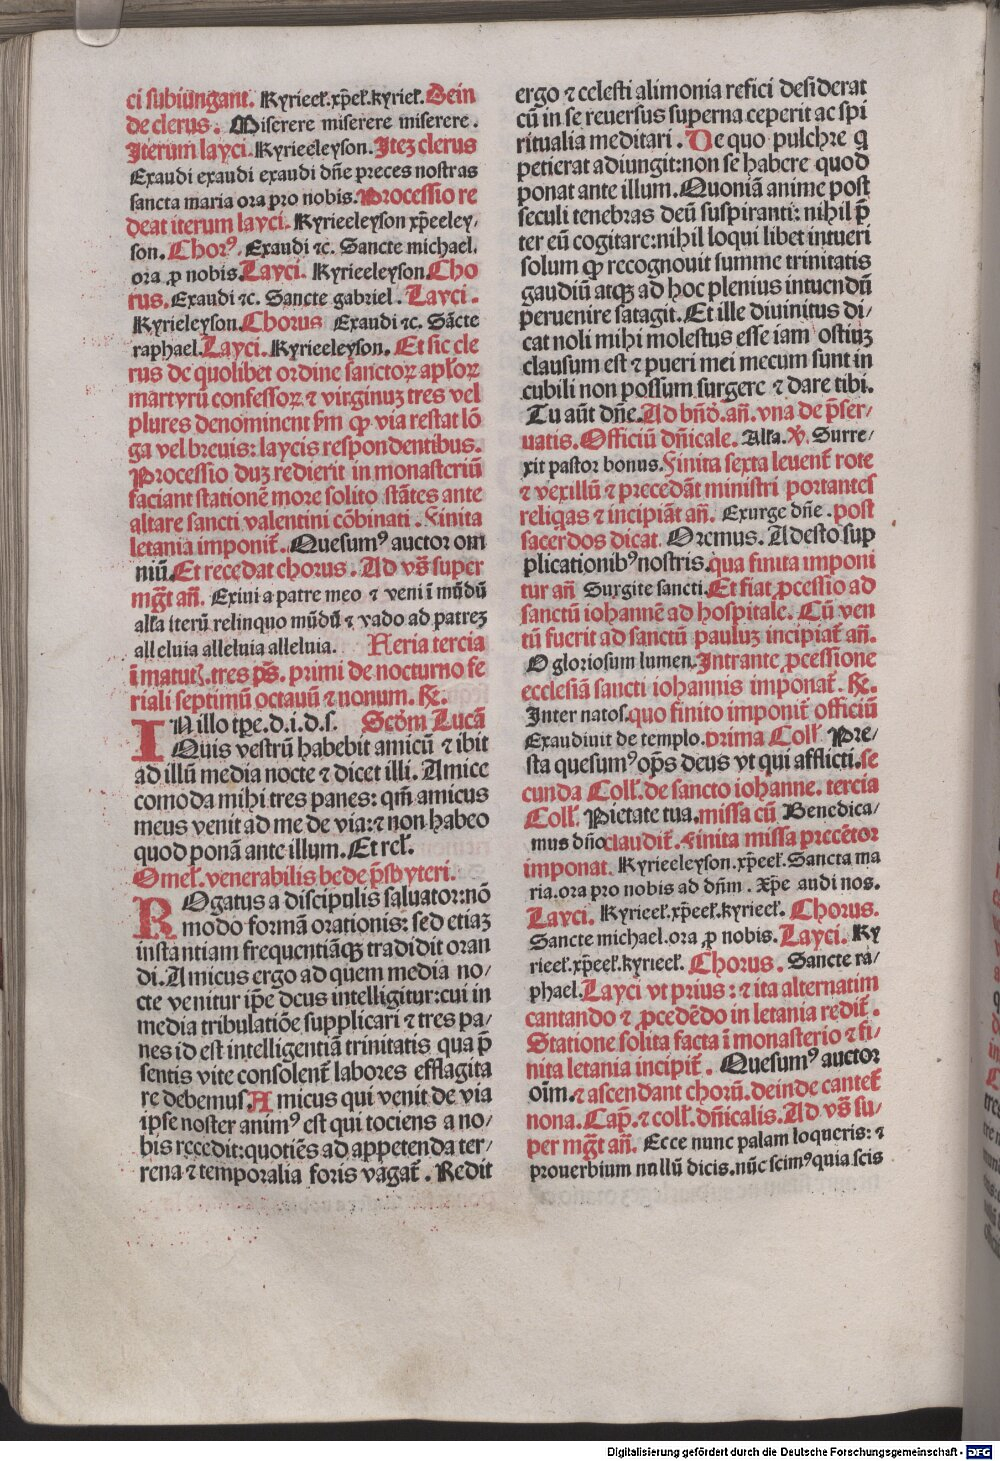 ci subiungant. Kyrieeł.xp̄eł.kyrieł. Dein
de clerus. Miserere miserere miserere.
Iterum layci. Kyrieeleyson. Iteꝫ clerus
Exaudi exaudi exaudi dn̄e preces nostras
sancta maria ora pro nobis. Processio re
deat iterum layci. Kyrieeleyson xp̄eeley/
son. Chorꝰ. Exaudi ⁊c. Sancte michael.
ora ꝓ nobis. Layci. Kyrieeleyson. Cho
rus. Exaudi ⁊c. Sancte gabriel. Layci.
Kyrieleyson. Chorus Exaudi ⁊c. Sācte
raphael. Layci. Kyrieeleyson. Et sic cle
rus de quolibet ordine sanctoꝝ apłoꝝ
martyrū confessoꝝ ⁊ virginuꝫ tres vel
plures denominent fm̄ ꝙ via restat lō
ga vel breuis: laycis respondentibus.
Processio duꝫ redierit in monasteriū
faciant stationē more solito stātes ante
altare sancti valentini cōbinati. Finita
letania imponit̄. Quesumꝰ auctor om
niū. Et recedat chorus. Ad vs̄ super
mḡt an̄. Exini a patre meo ⁊ veni ī mūdū
alła iterū relinquo mūdū ⁊ vado ad patreꝫ
alleluia alleluia alleluia. Feria tercia
ī matut̄. tres ps̄. primi de nocturno fe
riali septimū octauū ⁊ nonum. ℟.
IN illo tꝑe.d.i.d.s. Scd̄m Lucā
Quis vestrū habebit amicū ⁊ ibit
ad illū media nocte ⁊ dicet illi. Amice
comoda mihi tres panes: qm̄ amicus
meus venit ad me de via: ⁊ non habeo
quod ponā ante illum. Et reł.
Omeł. venerabilis bede p̄sbyteri.
ROgatus a discipulis saluator: nō
modo formā orationis: sed etiaꝫ
instantiam frequentiāqꝫ tradidit oran
di. Amicus ergo ad quem media no/
cte venitur ip̄e deus intelligitur: cui in
media tribulatiōe supplicari ⁊ tres pa/
nes id est intelligentiā trinitatis qua p̄
sentis vite consolent̄ labores efflagita
re debemus. Amicus qui venit de via
ipse noster animꝰ est qui tociens a no/
bis recedit: quotiēs ad appetenda ter/
rena ⁊ temporalia foris vagat̄. Redit
ergo ⁊ celesti alimonia refici desiderat
cū in se reuersus superna ceperit ac spi
ritualia meditari. De quo pulchre q
petierat adiungit: non se habere quod
ponat ante illum. Quoniā anime post
seculi tenebras deū suspiranti: nihil p̄
ter eū cogitare: nihil loqui libet intueri
solum ꝙ recognouit summe trinitatis
gaudiū atqꝫ ad hoc plenius intuendū
peruenire satagit. Et ille diuinitus di/
cat noli mihi molestus esse iam ostiuꝫ
clausum est ⁊ pueri mei mecum sunt in
cubili non possum surgere ⁊ dare tibi.
Tu aūt dn̄e. Ad bn̄d̄. an̄. vna de p̄ser/
uatis. Officiū dn̄icale. Alła. ℣. Surre/
xit pastor bonus. Finita sexta leuent̄ rote
⁊ vexillū ⁊ precedāt ministri portantes
reliqas ⁊ incipiāt an̄. Exurge dn̄e. post
sacerdos dicat. Oremus. Adesto sup
plicationibꝰ nostris. qua finita imponi
tur an̄ Surgite sancti. Et fiat ꝓcessio ad
sanctū iohannē ad hospitale. Cū ven
tū fuerit ad sanctū pauluꝫ incipiat̄ an̄.
O gloriosum lumen. Intrante ꝓcessione
ecclesiā sancti iohannis imponat̄. ℟.
Inter natos. quo finito imponit̄ officiū
Exaudiuit de templo. prima Coll̄. Pre/
sta quesumꝰ op̄s deus vt qui afflicti. se
cunda Coll̄. de sancto iohanne. tercia
Coll̄. Pietate tua. missa cū Benedica/
mus dn̄o claudit̄. Finita missa precētor
imponat. Kyrieeleyson. xp̄eeł. Sancta ma
ria. ora pro nobis ad dn̄m. Xp̄e audi nos.
Layci. Kyrieeł.xp̄eeł.kyrieeł. Chorus.
Sancte michael. ora ꝓ nobis. Layci. Ky
rieeł.xp̄eeł.kyrieeł. Chorus. Sancte ra/
phael. Layci vt prius: ⁊ ita alternatim
cantando ⁊ ꝓcedēdo in letania redit̄.
Statione solita facta ī monasterio ⁊ fi/
nita letania incipit̄. Quesumꝰ auctor
oīm. ⁊ ascendant chorū. deinde cantet̄
nona. Cap̄. ⁊ coll̄. dn̄icalis. Ad vs̄ su/
per mḡt an̄. Ecce nunc palam loqueris: ⁊
prouerbium nullū dicis. nūc scimꝰ quia scis
Digitalisierung gefördert durch die Deutsche Forschungsgemeinschaft - DFG